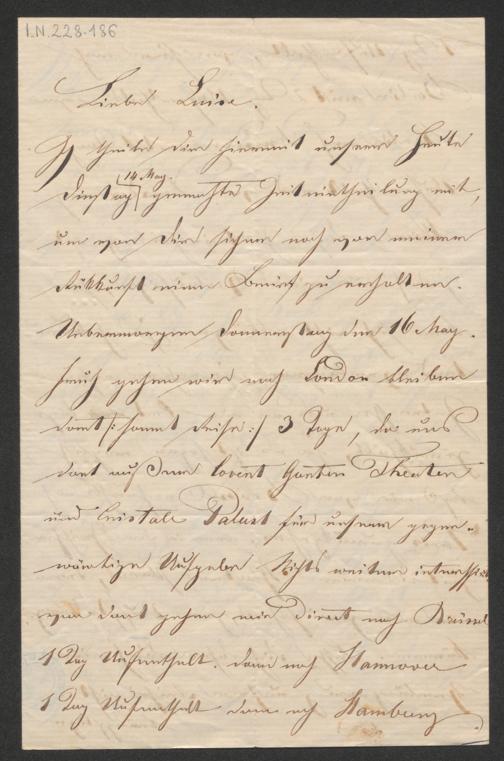 I.N. 228.186
Liebe Luise.
Ich theile dir hiermit unsere heute
14 May.
Dienstag gemachte Zeiteintheilung mit,
um von dir sicher noch vor meiner
Rükkunft einen Brief zu erhalten.
Uebermorgen Donnerstag den 16 May.
früh gehen wir nach London bleiben
dort /: sammt Reise :/ 3 Tage, da uns
dort außer Covent Garten Theater
und Cristale Palast für unsere gegen-
wärtige Aufgabe Nichts weiter interessirt
von dort gehen wir direct nach Brüssel
1 Tag Aufenthalt. dann nach Hannover
1 Tag Aufenthalt dann nach Hamburg